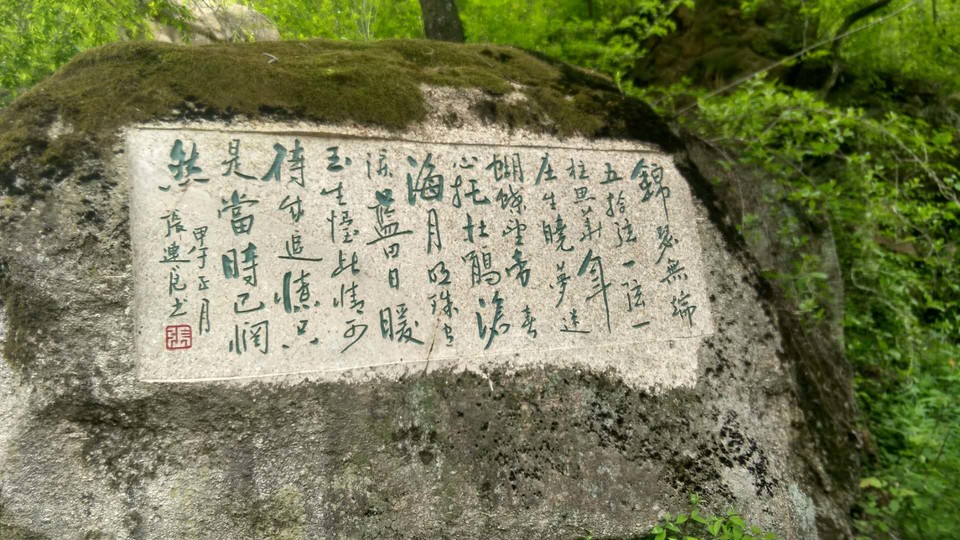 錦瑟無端
五拾弦一弦一
柱思華年
庄生曉夢迷
蝴蝶望帝春
心托杜鵑滄
海月明珠有
淚藍田日暖
玉生煙此情可
待成追憶只
是當時已惘
然
甲午正月
張书